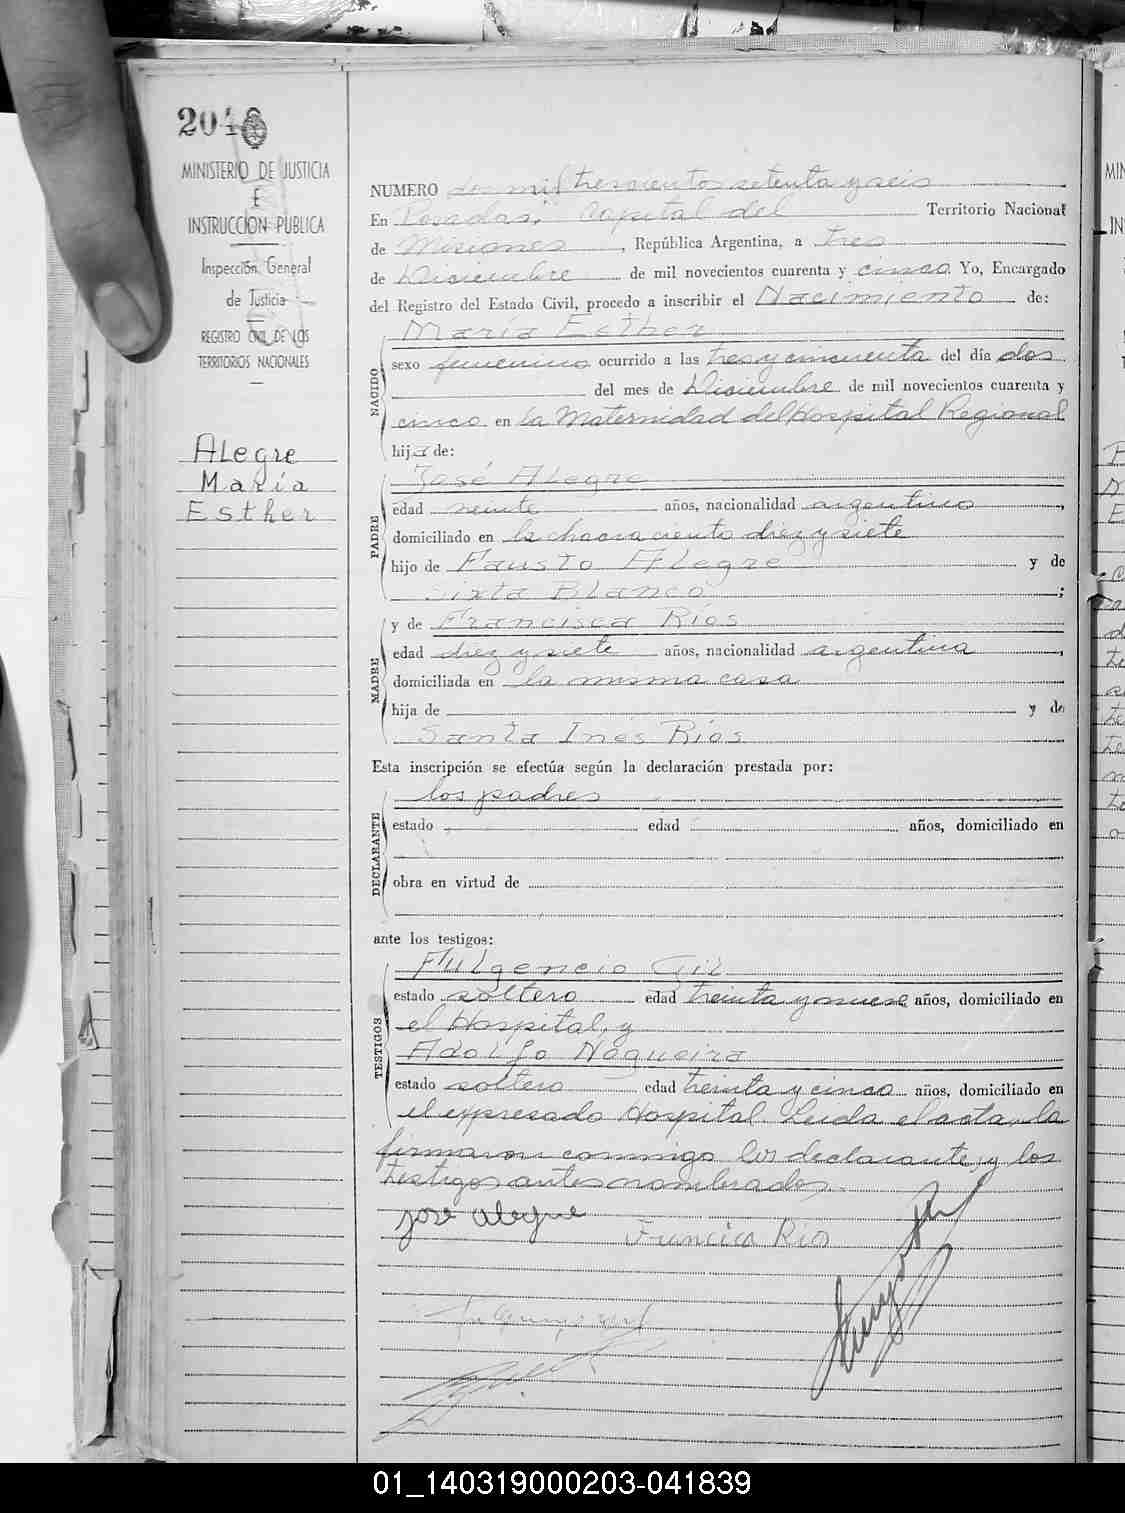 204
MINISTERIO DE JUSTICIA
E
INSTRUCCIÓN PUBLICA
Inspección General
de Justicia
REGISTRO CIVIL DE LOS
TERRITORIOS NACIONALES
Alegre
María
Esther
NUMERO dos mil trescientos setenta y seis
En Posadas, Capital del Territorio Nacional
de Misiones, República Argentina, a tres
de Diciembre de mil novecientos cuarenta y cinco Yo, Encargado
del Registro del Estado Civil, procedo a inscribir el Nacimiento de:
María Esther
NACIDO
sexo femenino ocurrido a las tres y cincuenta del día dos
del mes de Diciembre de mil novecientos cuarenta y
cinco en la Maternidad del Hospital Regional
hija de:
José Alegre
PADRE
edad veinte años, nacionalidad argentino,
domiciliado en la chacra ciento diez y siete
hijo de Fausto Alegre y de
Sixta Blanco;
y de Francisca Ríos
MADRE
edad diez y siete años, nacionalidad argentina,
domiciliada en la misma casa
hija de y de
Santa Inés Ríos
Esta inscripción se efectúa según la declaración prestada por:
los padres
DECLARANTE
estado edad años, domiciliado en
obra en virtud de
ante los testigos:
Fulgencio Gil
TESTIGOS
estado soltero edad treinta y nueve años, domiciliado en
el Hospital, y
Adolfo Nogueira
estado soltero edad treinta y cinco años, domiciliado en
el expresado Hospital. Leída el acta, la
firmaron conmigo los declarante, y los
testigos antes nombrados.
José Alegre
Funcica Rios
01_140319000203-041839